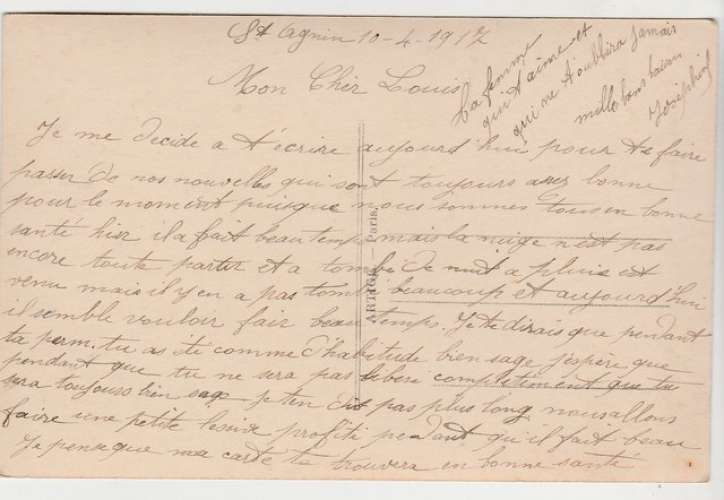 St Agnin 10-4-1917
Mon Cher Louis
Je me decide a t'écrire aujourd'hui pour te faire
passer de nos nouvelles qui sont toujours assez bonne
pour le moment puisque nous sommes tous en bonne
santé hier il a fait beau temps mais la neige n'est pas
encore toute partir et a tombé de nuit a pluie est
venu mais il y en a pas tombé beaucoup et aujourd'hui
il semble vouloir fair beau temps. Je te dirais que pendant
ta perm. tu as été comme d'habitude bien sage j'espère que
pendant que tu ne sera pas complètement que tu
sera toujours bien sage je t'en dis pas plus long nous allons
faire une petite lessive profiti pendant qu'il fait beau
Je pense que ma carte te trouvera en bonne santé
ta femme
qui t'aime et
qui ne t'oubliera jamais
mille bons baisers
Joséphine
ARTIGE — Paris